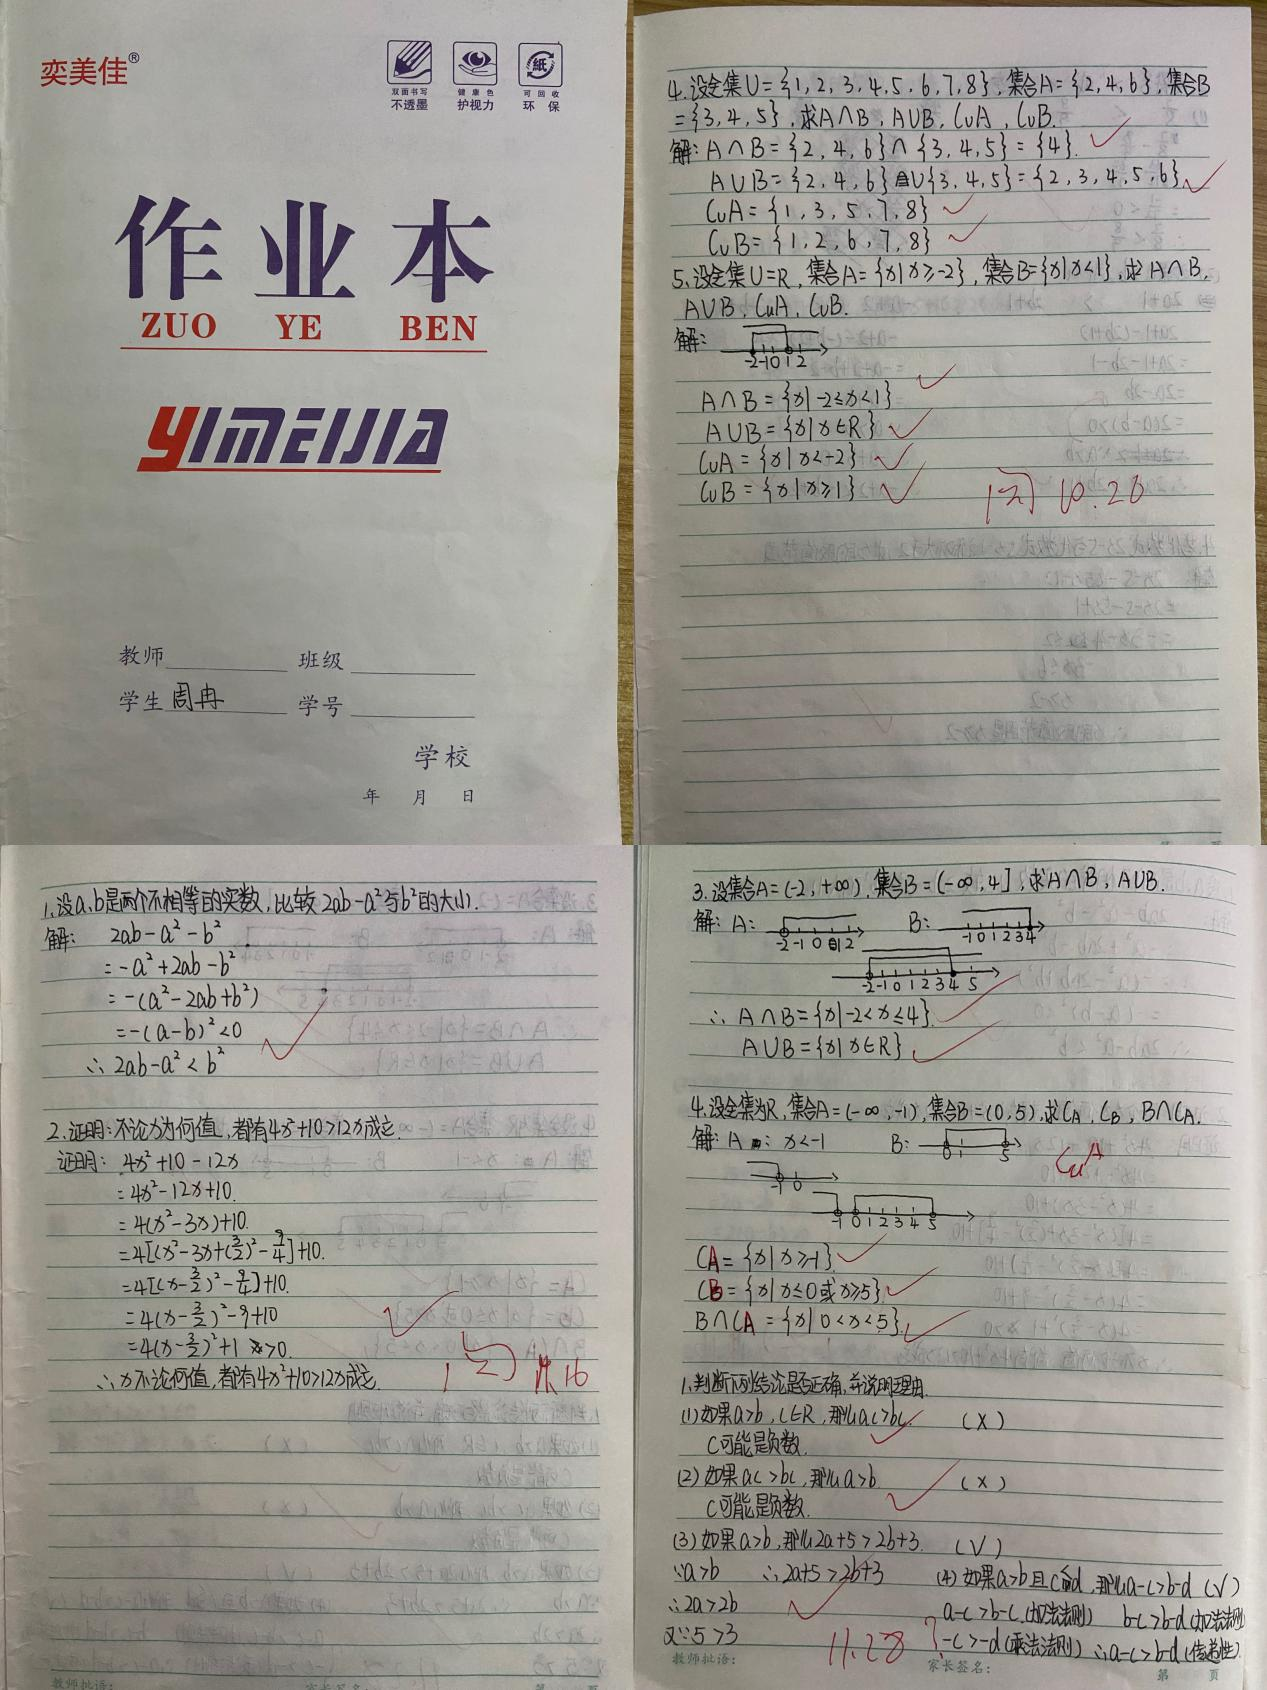 奕美佳®
双面书写 健康色 可回收
不透墨 护视力 环保
紙
作业本
ZUO YE BEN
YIMEIJIA
教师 班级
学生 周冉 学号
学校
年 月 日
4.设全集U={1,2,3,4,5,6,7,8},集合A={2,4,6},集合B
={3,4,5},求A∩B,A∪B,CuA,CuB.
解:A∩B={2,4,6}∩{3,4,5}={4}.
A∪B={2,4,6}∪{3,4,5}={2,3,4,5,6}
CuA={1,3,5,7,8}
CuB={1,2,6,7,8}
5.设全集U=R,集合A={x|x≥-2},集合B={x|x<1},求A∩B,
A∪B,CuA,CuB.
解:
-2 -1 0 1 2
A∩B={x|-2≤x<1}
A∪B={x|x∈R}
CuA={x|x<-2}
CuB={x|x≥1}
10.26
1.设a、b是两个不相等的实数,比较2ab-a²与b²的大小.
解: 2ab-a²-b²
=-a²+2ab-b²
=-(a²-2ab+b²)
=-(a-b)²<0
∴2ab-a²<b²
2.证明:不论x为何值,都有4x²+10>12x成立.
证明: 4x²+10-12x
=4x²-12x+10.
=4(x²-3x)+10.
=4[(x²-3x+(3/2)²-9/4]+10.
=4[(x-3/2)²-9/4]+10.
=4(x-3/2)²-9+10
=4(x-3/2)²+1>0.
∴x不论何值,都有4x²+10>12x成立.
3.设集合A=(-2,+∞),集合B=(-∞,4],求A∩B,A∪B.
解: A: B:
-2 -1 0 1 2
-1 0 1 2 3 4
-2 -1 0 1 2 3 4 5
∴A∩B={x|-2<x≤4}.
A∪B={x|x∈R}
4.设全集为R,集合A=(-∞,-1),集合B=(0,5),求CA,CB,B∩CA.
解: A: x<-1 B:
0 1 5
CuA
-1 0
-1 0 1 2 3 4 5
CA={x|x≥-1}.
CB={x|x≤0或x≥5}
B∩CA={x|0<x<5}
1.判断下列结论是否正确,并说明理由.
(1)如果a>b,c∈R,那么ac>bc. (×)
C可能是负数.
(2)如果ac>bc,那么a>b (×)
C可能是负数.
(3)如果a>b,那么2a+5>2b+3. (√)
∵a>b ∴2a+5>2b+3
∴2a>2b
又∵5>3
(4)如果a>b且c<d,那么a-c>b-d (√)
a-c>b-c(加法法则) b-c>b-d(加法法则)
-c>-d(乘法法则) ∴a-c>b-d(传递性)
11.28 ?
教师批语: 家长签名: 第 页
教师批语: